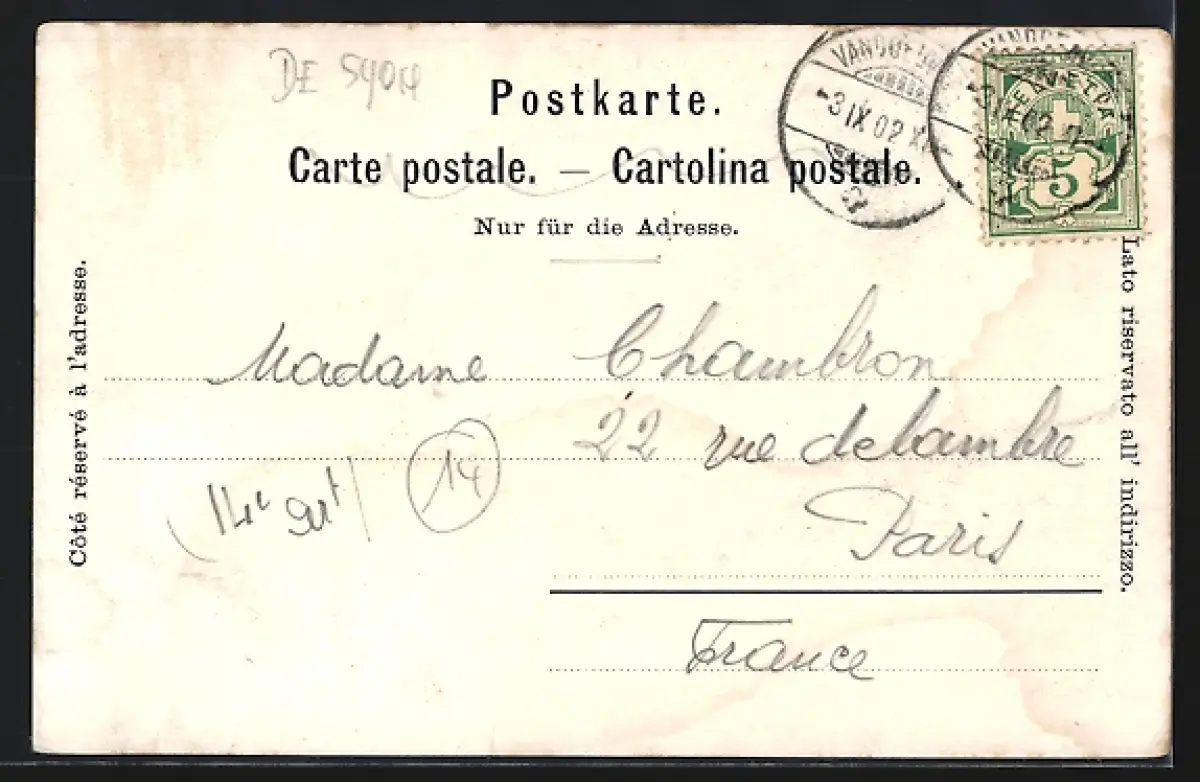 DE 5404
Postkarte.
Carte postale. — Cartolina postale.
Nur für die Adresse.
-3 IX 02
HELVETIA
5
Côté réservé à l'adresse.
Lato riservato all' indirizzo.
Madame Chambron
22 rue delambre
Paris
(14e arrt)
14
France